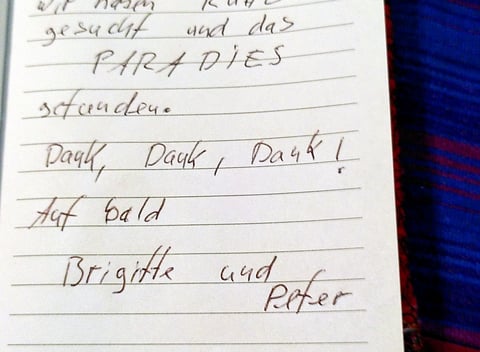 Wir haben RUHE
gesucht und das
PARADIES
gefunden.
Dank, Dank, Dank!
Auf bald
Brigitte und
Peter